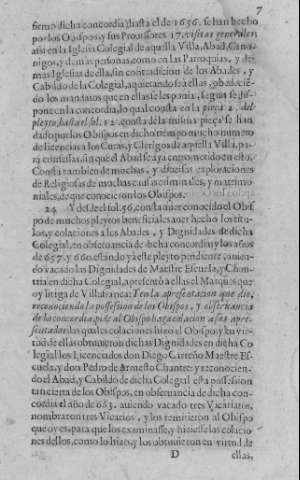 7
firmò dicha concordia) hasta el de 1656. se han hecho
por los Obispos y sus Prouisores 17. visitas generales,
assi en la Iglesia Colegial de aquella Villa, Abad, Cano-
nigos, y demas personas, como en las Parroquias, y de
mas Iglesias de ella, sin contradicion de los Abades, y
Cabildo de la Colegial, aquietandose à ellas, obedecié-
do los mandatos que en ellas se les ponia, segun se dis-
pone en la concordia, lo qual consta en la pieça 2. del
pleyto, hasta el fol. 12. consta de la misma pieça se han
dado por los Obispos en dicho tiempo mucho numero
de licencias a los Curas, y Clerigos de aquella Villa, pa-
ra confessar, sin que el Abad se aya entrometido en esto,
Consta tambien de muchas, y diuersas exploraciones
de Religiosas de muchas causas criminales, y matrimo
niales, de que conocieron los Obispos.
24 Y desde el fol. 56. consta auer conocido el Obis
po de muchos pleytos beneficiales auer hecho los titu-
los, y colaciones a los Abades, y Dignidades de dicha
Colegial, en obseruancia de dicha concordia y los años
de 657. y 660. estando ya este pleyto pendiente, auien-
do vacado las Dignidades de Maestre Escuela, y Chan-
tria en dicha Colegial, apresentò a ellas el Marques que
oy litiga de Villafranca: Ten la apresentacion que dio,
reconociendo la possession de los Obispos, y obseruancia
de la concordia, pide al Obispo haga colacion a sus apre-
sentados: las quales colaciones hizo el Obispo, y en vir
tud de ellas obtuuieron dichas Dignidades en dicha Co
legial los Licenciados don Diego Carreño Maestre Es-
cuela, y don Pedro de Armesto Chantre: y reconocien-
do el Abad, y Cabildo de dicha Colegial esta possession
tan cierta de los Obispos, en obseruancia de dicha con-
cordia el año de 663. auiendo vacado tres Vicariatos,
nombraron tres Vicarios, y los remitieron al Obispo
que oy es, para que los examinasse, y hiziesse las colacio
nes dellos, como lo hizo, y los obtuuieron en virtud de
D ellas,